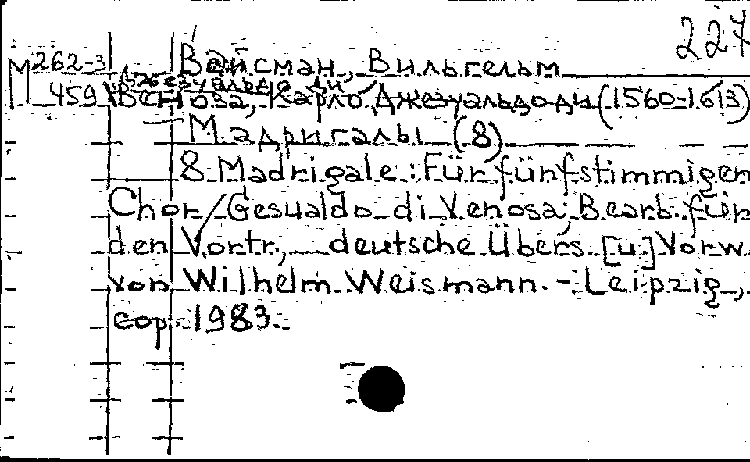 227
М 262-3
459
Вайсман, Вильгельм
Джезуальдо ди
Веноза, Карло Джезуальдо ди (1560-1613)
Мадригалы (8)
8 Madrigale: Für fünfstimmigen
Chor / Gesualdo di Venosa; Bearb. für
den Vortr., deutsche Übers. [u.] Vorw.
von Wilhelm Weismann. - Leipzig,
cop. 1983.